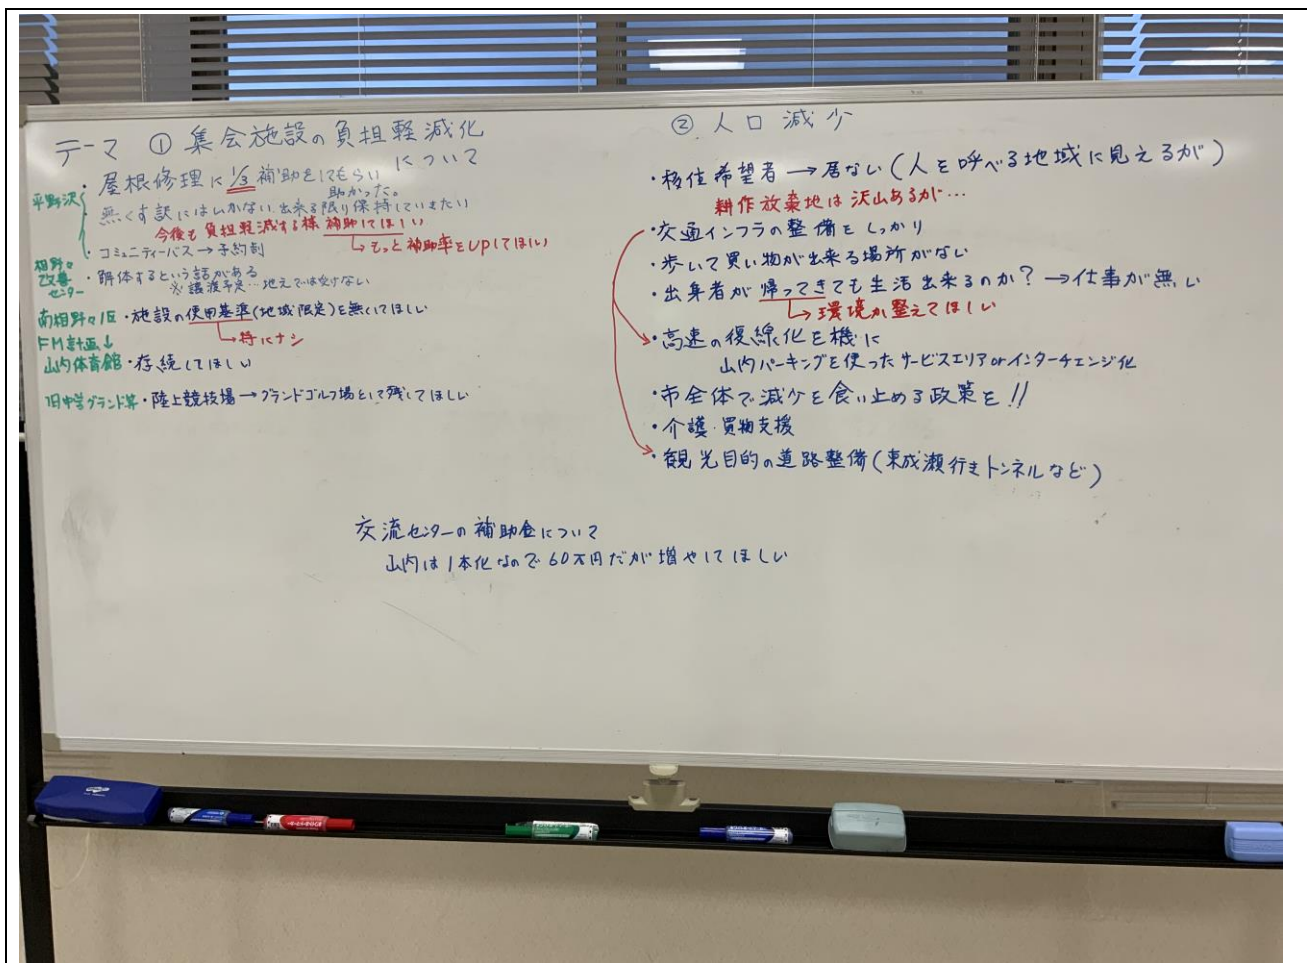 テーマ ① 集会施設の負担軽減化
について
平野沢
・屋根修理に1/3補助をしてもらい
助かった。
・無くす訳にはいかない出来る限り保持していきたい
今後も負担軽減する様 補助してほしい
↳もっと補助率をUPしてほしい
・コミュニティーバス→予約制
相野々
改善
センター
・解体するという話がある
※譲渡予定…地元では受けない
南相野々1区・施設の使用基準(地域限定)を無くしてほしい
↳特にナシ
FM計画↓
山内体育館・存続してほしい
旧中学グランド等・陸上競技場→グランドゴルフ場として残してほしい
② 人口減少
・移住希望者→居ない(人を呼べる地域に見えるが)
耕作放棄地は沢山あるが…
・交通インフラの整備をしっかり
・歩いて買い物が出来る場所がない
・出身者が帰ってきても生活出来るのか?→仕事が無い
↳環境が整えてほしい
・高速の復線化を機に
山内パーキングを使ったサービスエリアorインターチェンジ化
・市全体で減少を食い止める政策を!!
・介護・買物支援
・観光目的の道路整備(東成瀬行きトンネルなど)
交流センターの補助金について
山内は1本化なので60万円だが増やしてほしい